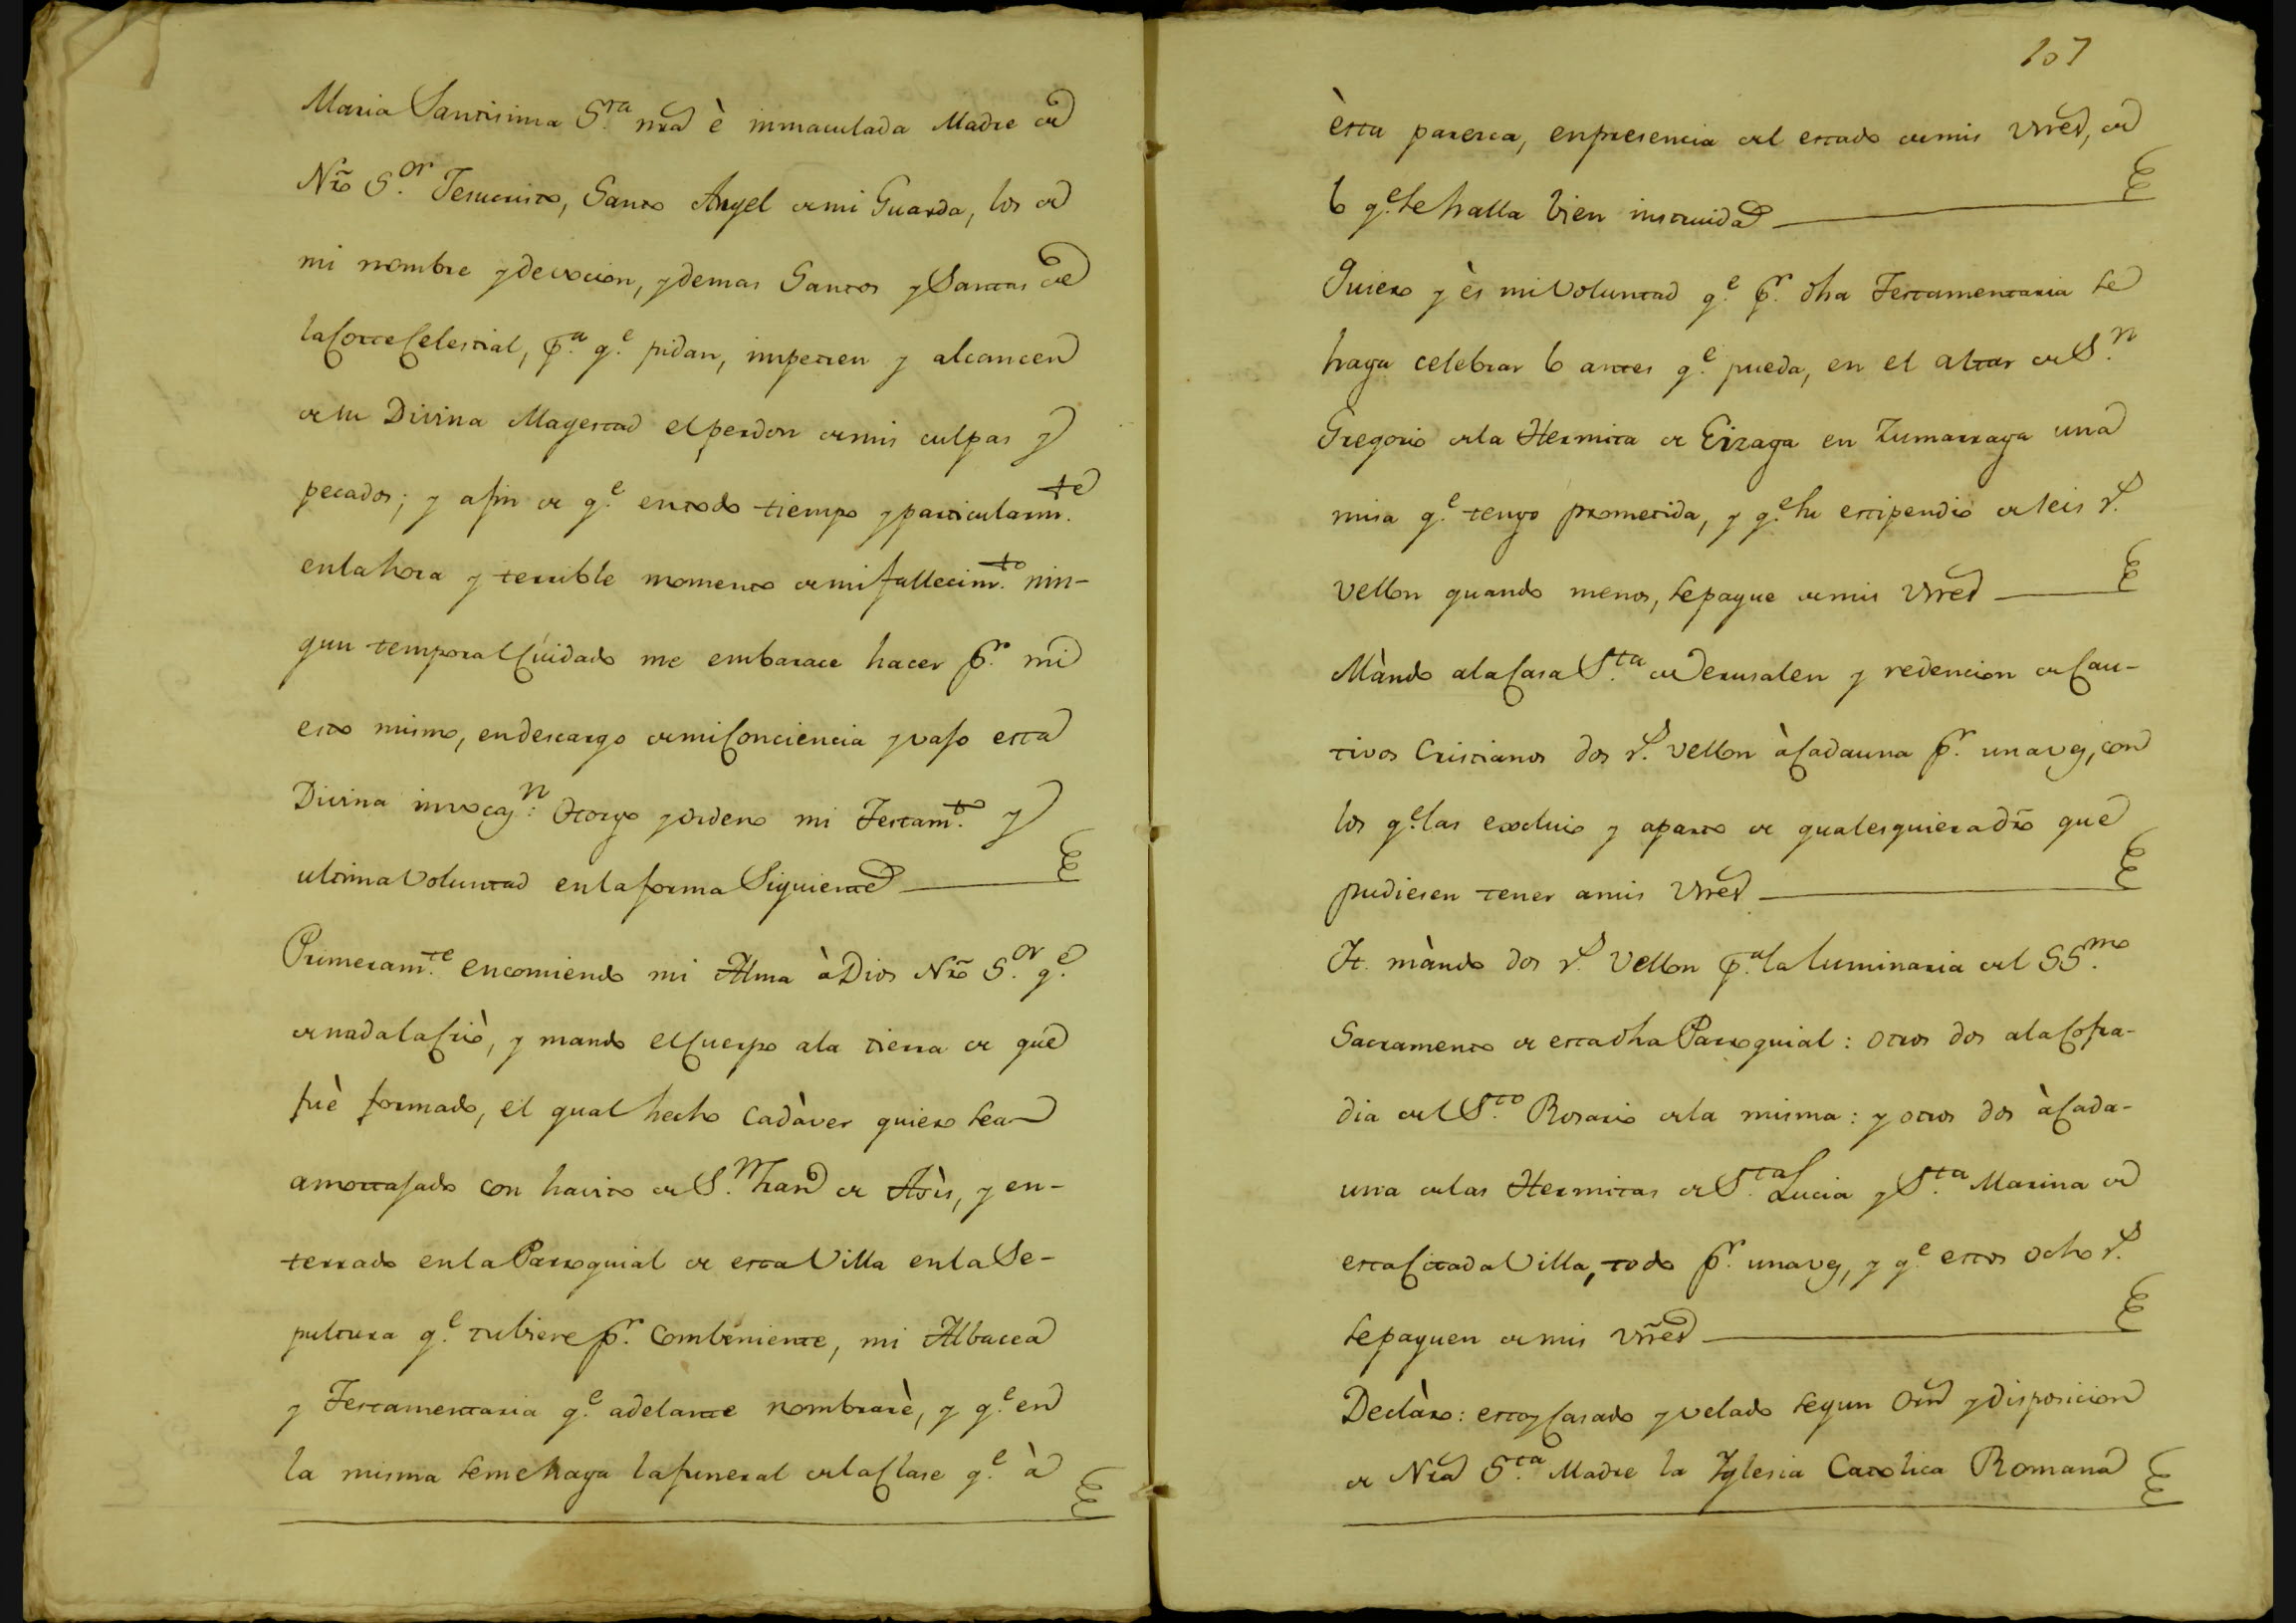 Maria Santisima S.ra nrã è inmaculada Madre de
Nrõ S.or Jesucristo, Santo Angel de mi Guarda, los de
mi nombre y devocion, y demas Santos y Santas de
la Corte Celestial, p.a q.e pidan, impetren y alcancen
de su Divina Magestad el perdon de mis culpas y
pecados; y afin de q.e en todo tiempo y particularm.te
en la hora y terrible momento de mi fallecim.to nin-
gun temporal Cuidado me embarace hacer p.r mi
esto mismo, en descargo de mi Conciencia y vajo esta
Divina invocaz.n: Otorgo y ordeno mi Testam.to y
ultima Voluntad en la forma Siguiente
Primeram.te encomiendo mi Alma à Dios Nrõ S.or q.e
de nada la Criò, y mando el Cuerpo ala tierra de que
fuè formado, el qual hecho Cadàver quiero sea
amortajado con havito de S.n Fran.co de Asìs, y en-
terrado en la Parroquial de esta Villa en la Se-
pultura q.e tubiere p.r Combeniente, mi Albacea
y Testamentaria q.e adelante nombrarè, y q.e en
la misma seme haga la funeral de la Clase q.e à
107
èsta paresca, en presencia del estado de mis Vnes, de
lo q.e se halla bien instruida
Quiero y ès mi Voluntad q.e p.r dha Testamentaria se
haga celebrar lo antes q.e pueda, en el altar de S.n
Gregorio de la Hermita de Eizaga en Zumarraga una
misa q.e tengo prometida, y q.e su estipendio de seis r.s
vellon quando menos, se pague de mis Vnes
Màndo ala Casa S.ta de Jerusalen y redencion de Cau-
tivos Cristianos dos r.s vellon à Cada una p.r una vez, con
los q.e las excluio y aparto de qualesquiera drõ que
pudiesen tener a mis Vnes
It. màndo dos r.s Vellon p.a la luminaria del SS.mo
Sacramento de esta dha Parroquial: otros dos ala Cofra-
dia del S.to Rosario de la misma: y otros dos à Cada-
una de las Hermitas de S.ta Lucia y S.ta Marina de
esta Citada Villa, todo p.r una vez, y q.e estos ocho r.s
se paguen de mis Vnes
Declàro: estoy Casado y velado segun Orñ y disposicion
de Nrã S.ta Madre la Yglesia Catolica Romana